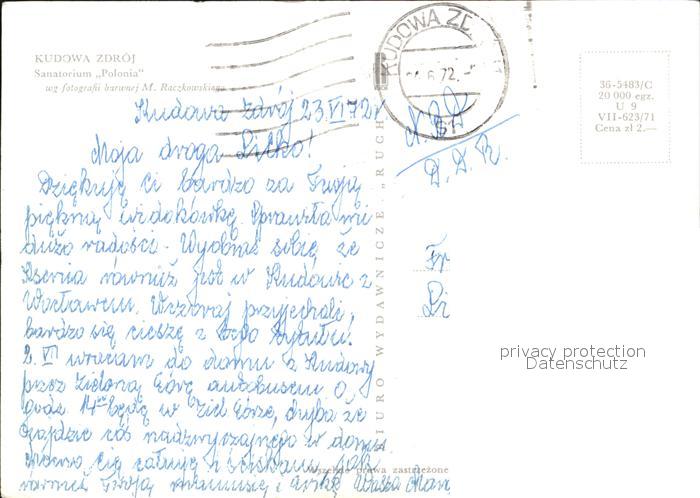 KUDOWA ZDRÓJ
Sanatorium „Polonia"
wg fotografii barwnej M. Raczkowskiego
KUDOWA ZD
6.72.-
36-5483/C
20 000 egz.
U 9
VII-623/71
Cena zł 2.—
Kudowa Zdrój 23.VI 72 r
Moja droga Lilko!
Dziękuję Ci bardzo za Twoją
piękną widokówkę. Sprawiła mi
dużo radości. Wyobraź sobie że
Ksenia również jest w Kudowie z
Wacławem. Wczoraj przyjechali,
bardzo się cieszę z tego
2. VII wracam do domu z Kudowy
przez Zieloną Górę autobusem O
godz 14 będę w Ziel Górze, chyba że
zajdzie coś nadzwyczajnego w domu.
Mocno Cię całuję i ściskam,
również Twoją mamusię i
D.D.R.
Fr
BIURO WYDAWNICZE „RUCH"
Wszelkie prawa zastrzeżone
privacy protection
Datenschutz